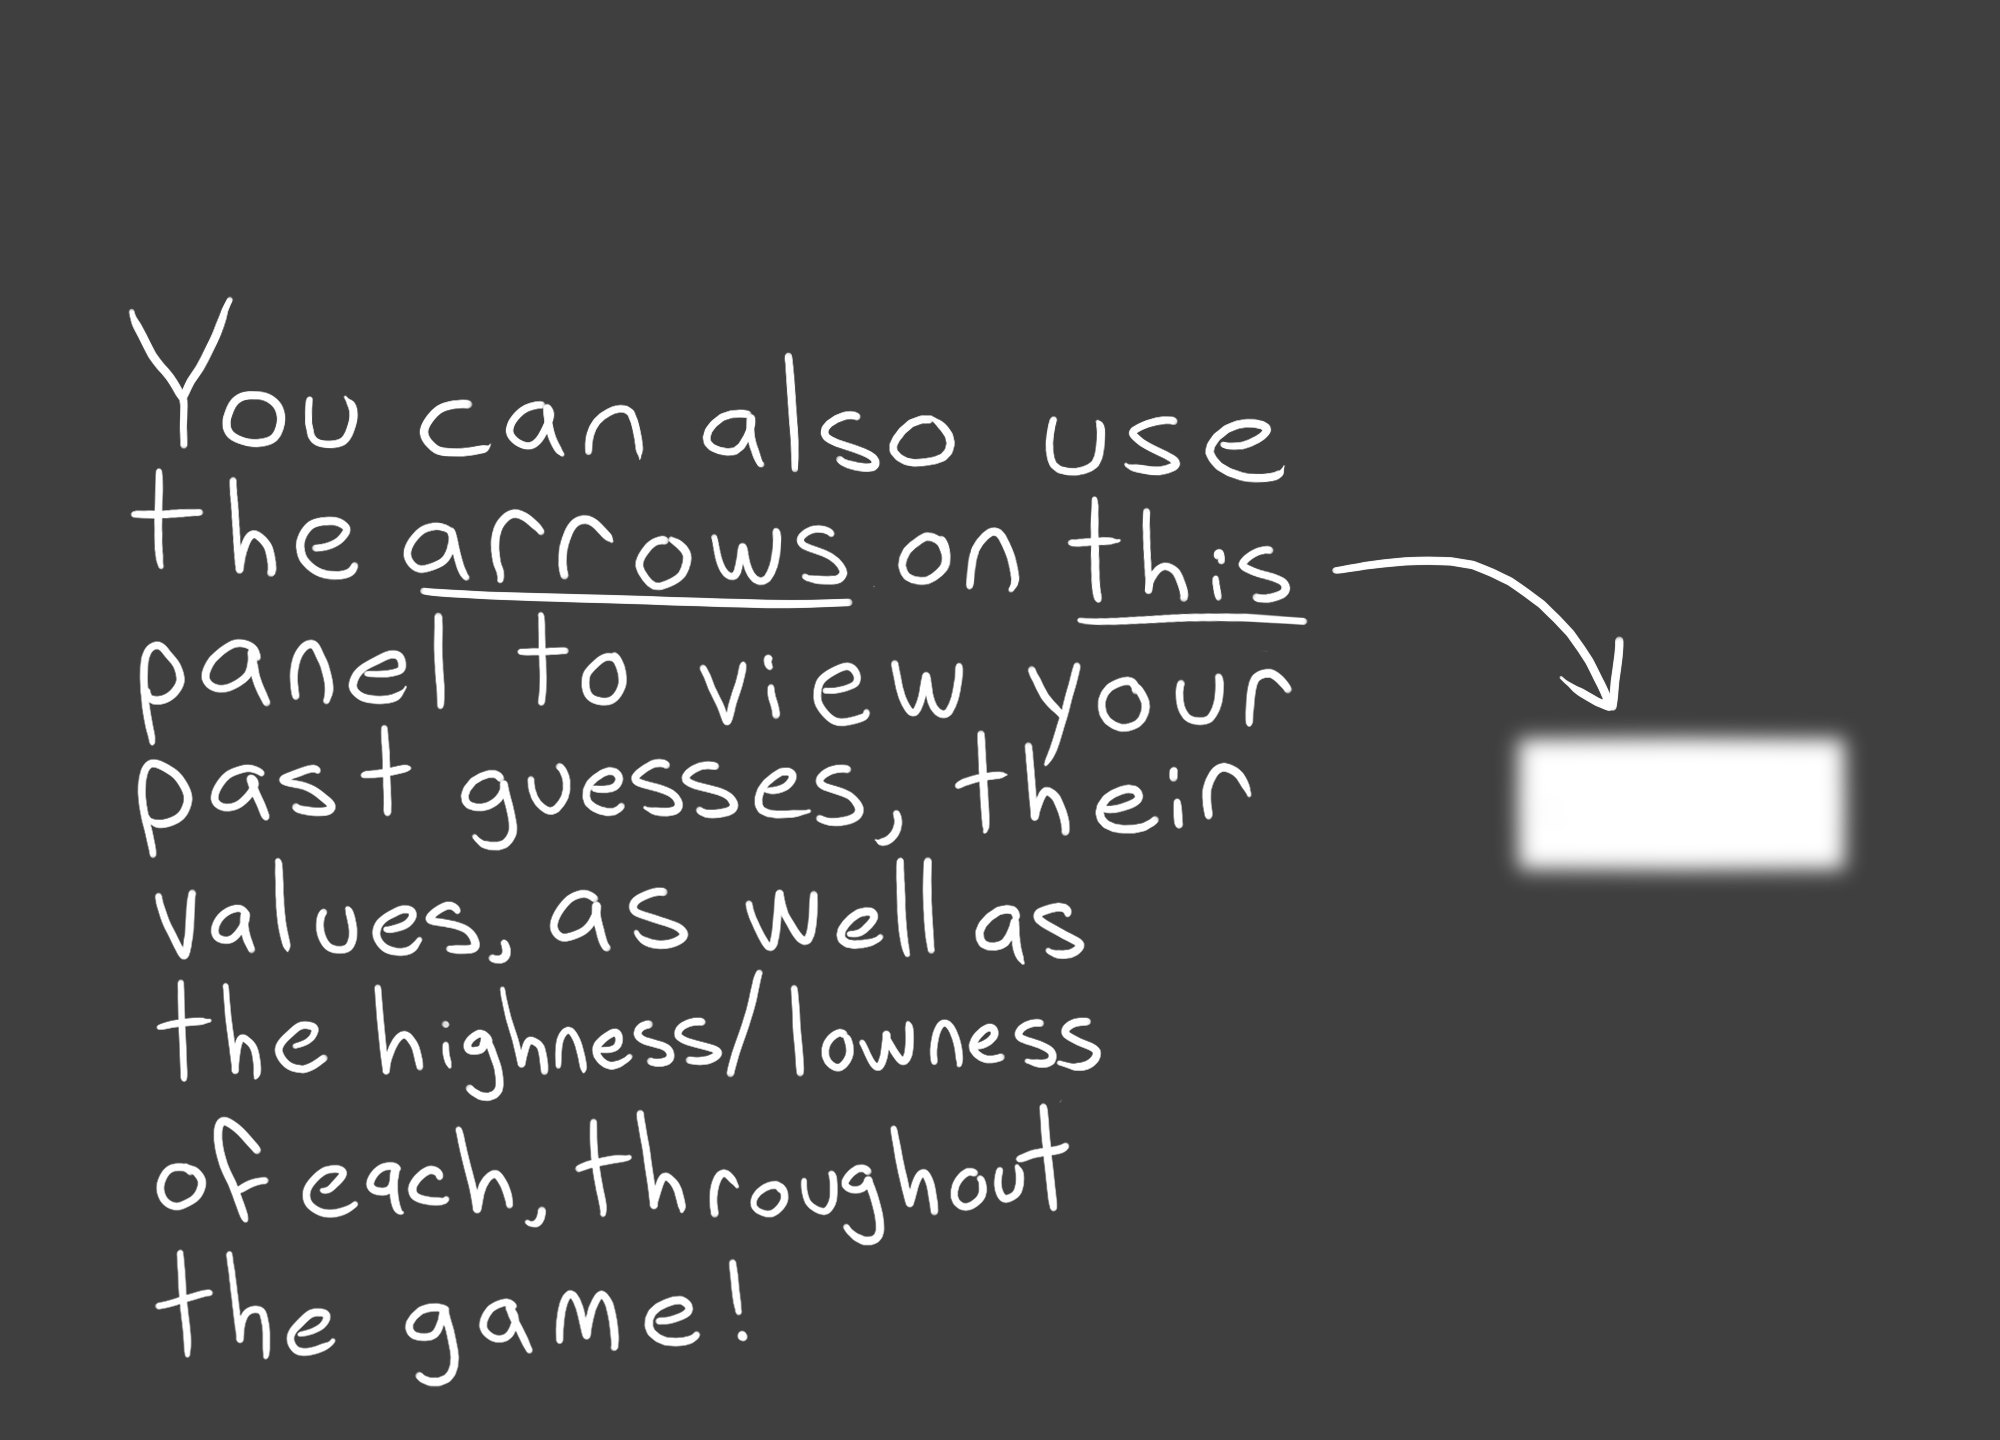 You can also use
the arrows on this
panel to view your
past guesses, their
values, as well as
the highness/lowness
of each, throughout
the game!